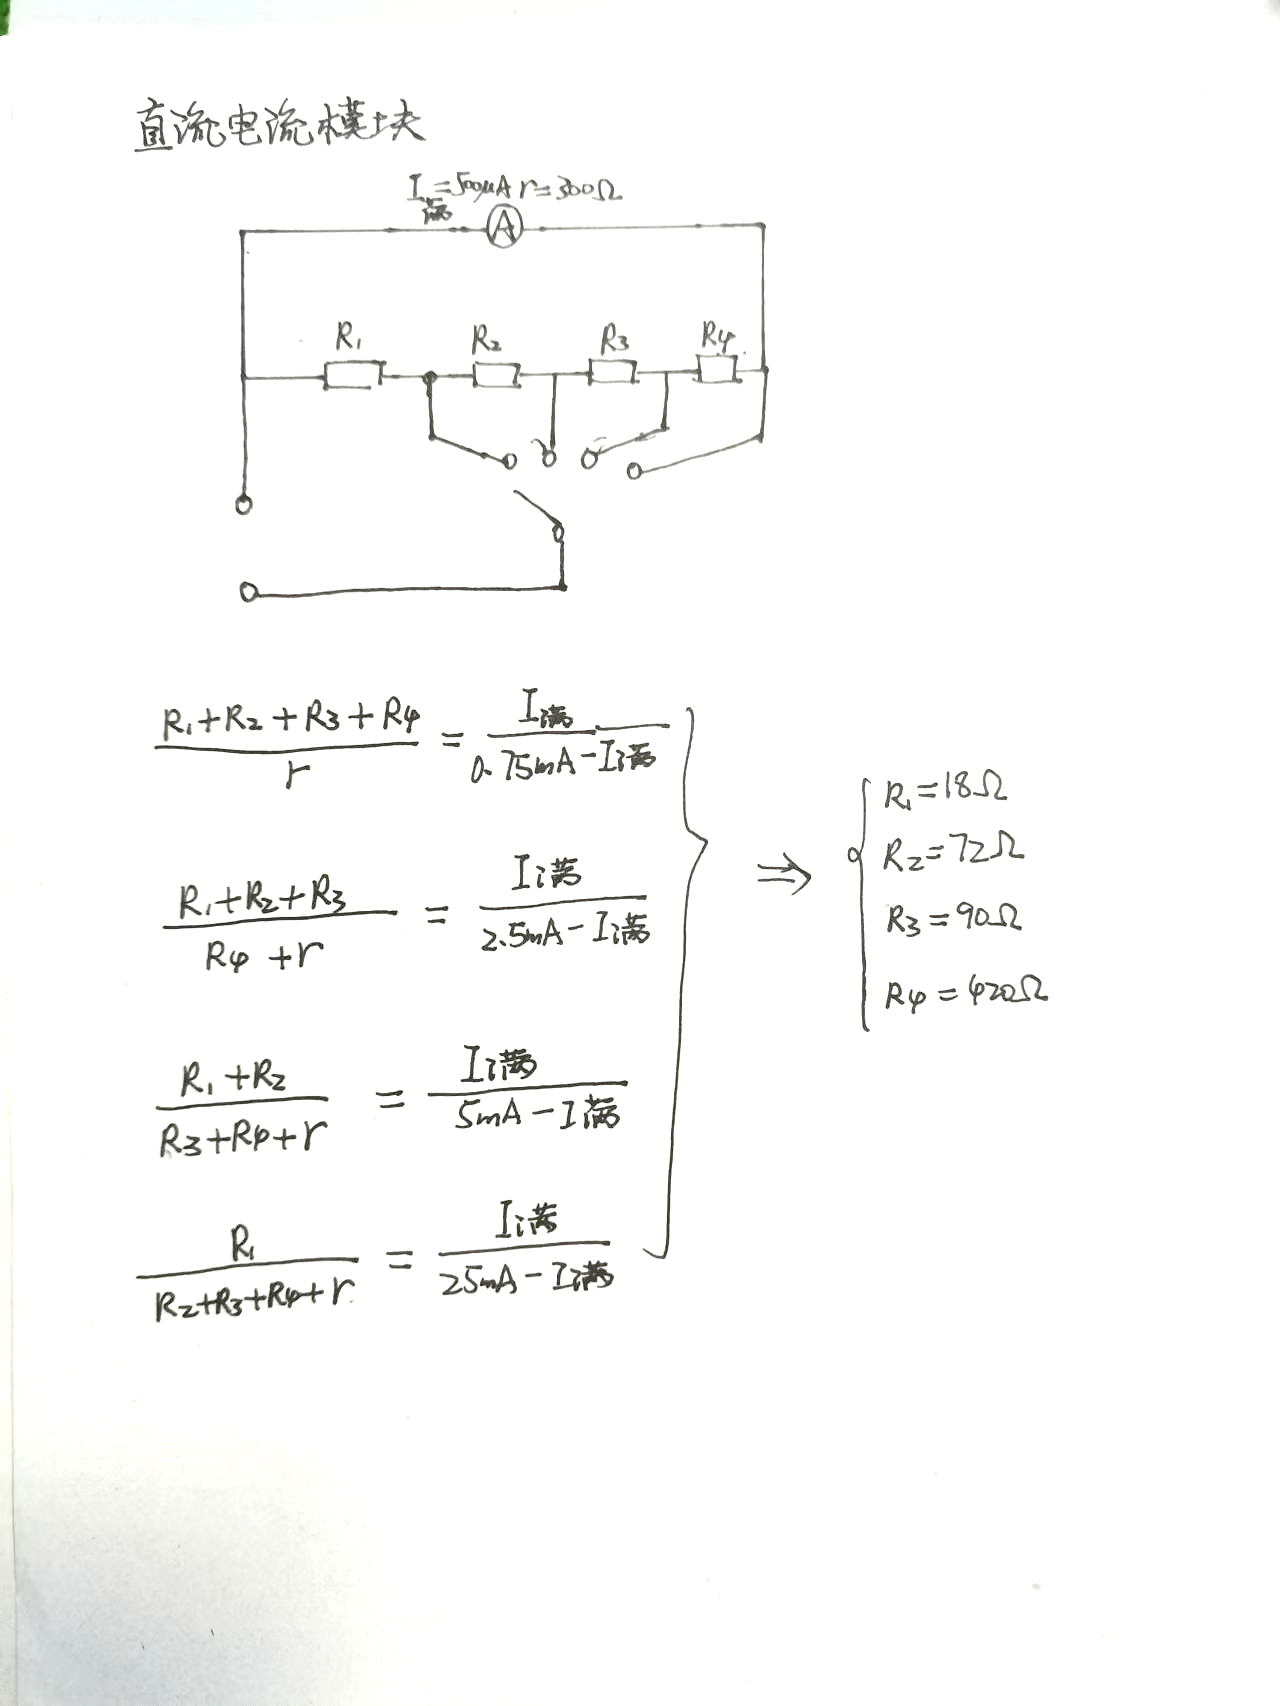 直流电流模块
I满=500μA r=300Ω
A
R₁ R₂ R₃ R₄
(R₁+R₂+R₃+R₄)/r = I满/(0.75mA-I满)
(R₁+R₂+R₃)/(R₄+r) = I满/(2.5mA-I满)
(R₁+R₂)/(R₃+R₄+r) = I满/(5mA-I满)
R₁/(R₂+R₃+R₄+r) = I满/(25mA-I满)
⇒
R₁=18Ω
R₂=72Ω
R₃=90Ω
R₄=420Ω